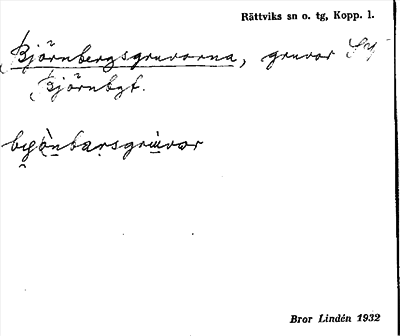 Rättviks sn o. tg, Kopp. l.
Björnbergsgruvorna, gruvor
Björnbgt.
Bror Lindén 1932